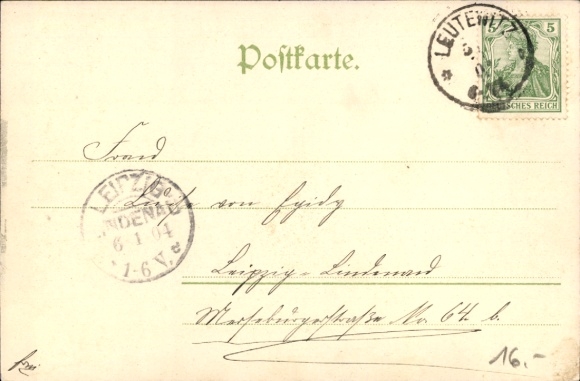 Postkarte.
LEUTEWITZ
5
DEUTSCHES REICH
von Egidy
LEIPZIG
LINDENAU
6 1 04
1-6 V.
Leipzig-Lindenau
Merseburgerstraße No. 64. b.
16.-